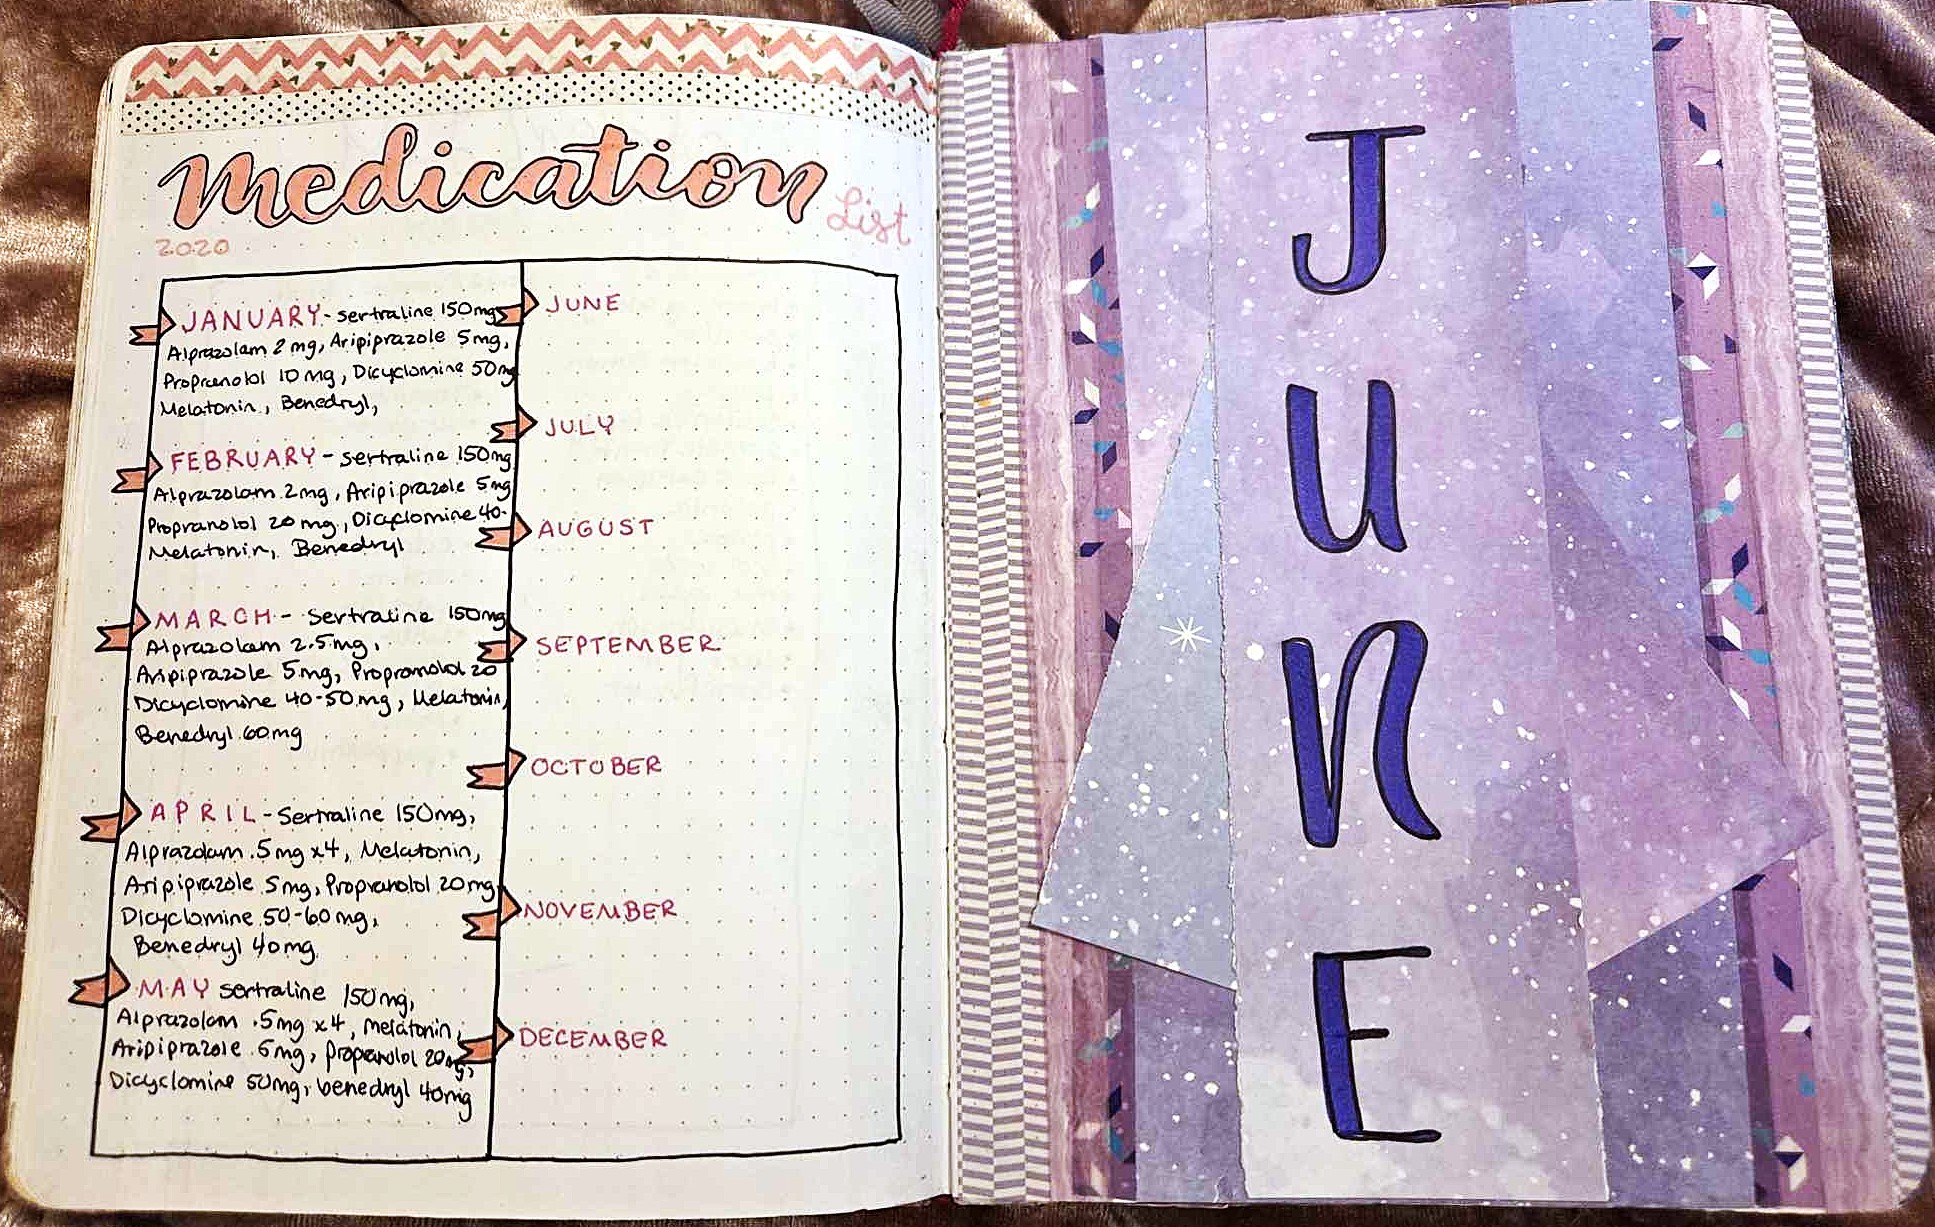 Medication List
2020
JANUARY - sertraline 150mg
Alprazolam 2mg, Aripiprazole 5mg,
Propranolol 10mg, Dicyclomine 50mg
Melatonin, Benedryl,
FEBRUARY - sertraline 150mg
Alprazolam 2mg, Aripiprazole 5mg
Propranolol 20mg, Dicyclomine 40-
Melatonin, Benedryl
MARCH - Sertraline 150mg
Alprazolam 2.5mg,
Aripiprazole 5mg, Propranolol 20
Dicyclomine 40-50mg, Melatonin,
Benedryl 60mg
APRIL - Sertraline 150mg,
Alprazolam .5mg x4, Melatonin,
Aripiprazole 5mg, Propranolol 20mg
Dicyclomine 50-60mg,
Benedryl 40mg
MAY sertraline 150mg,
Alprazolam .5mg x4, melatonin,
Aripiprazole 5mg, propranolol 20mg,
Dicyclomine 50mg, benedryl 40mg
JUNE
JULY
AUGUST
SEPTEMBER
OCTOBER
NOVEMBER
DECEMBER
JUNE